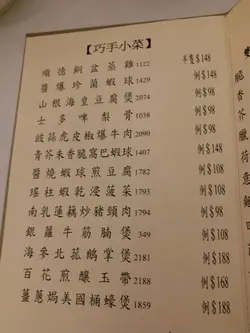 【巧手小菜】
順德銅盆蒸雞1122 半隻$148
醬爆珍菌蝦球1429 例$148
山根海皇豆腐煲2074 例$98
士多啤梨骨1038 例$98
豉蒜虎皮椒爆牛肉2090 例$98
青芥末香脆窩巴蝦球1407 例$148
醬燒蝦球煎豆腐1782 例$148
瑤柱蝦乾浸菠菜1793 例$108
南乳蓮藕炒豬頸肉1794 例$98
銀蘿牛筋腩煲349 例$88
海參北菰鵝掌煲2181 例$188
百花煎釀玉帶2188 例$168
薑蔥焗美國桶蠔煲1859 例$188
脆
香
芥
荷
意